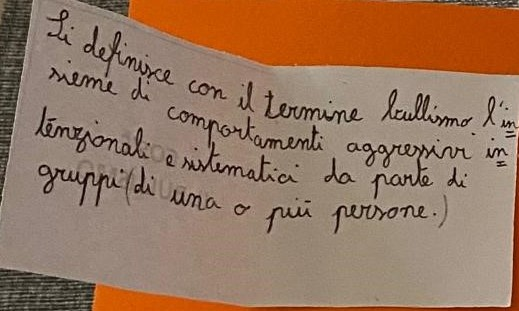 Si definisce con il termine bullismo l'in=
sieme di comportamenti aggressivi in=
tenzionali e sistematici da parte di
gruppi (di una o più persone.)